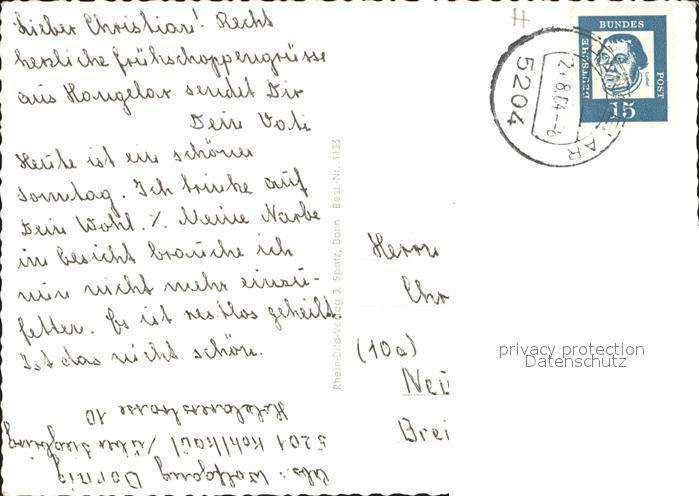 Lieber Christian! Recht
herzliche Frühschoppengrüsse
aus Hangelar sendet Dir
Dein Vati
Heute ist ein schöner
Sonntag. Ich trinke auf
Dein Wohl. %. Meine Narbe
im Gesicht brauche ich
nun nicht mehr einzu-
fetten. Es ist restlos geheilt.
Ist das nicht schön.
Abs: Wolfgang
5201 Kohlkaul / über Siegburg
10
Rhein-Bild-Verlag J. Spatz, Bonn Best.-Nr. 1133
DEUTSCHE
BUNDES
POST
15
5204
Herrn
Chr
(10a)
Brei
privacy protection
Datenschutz